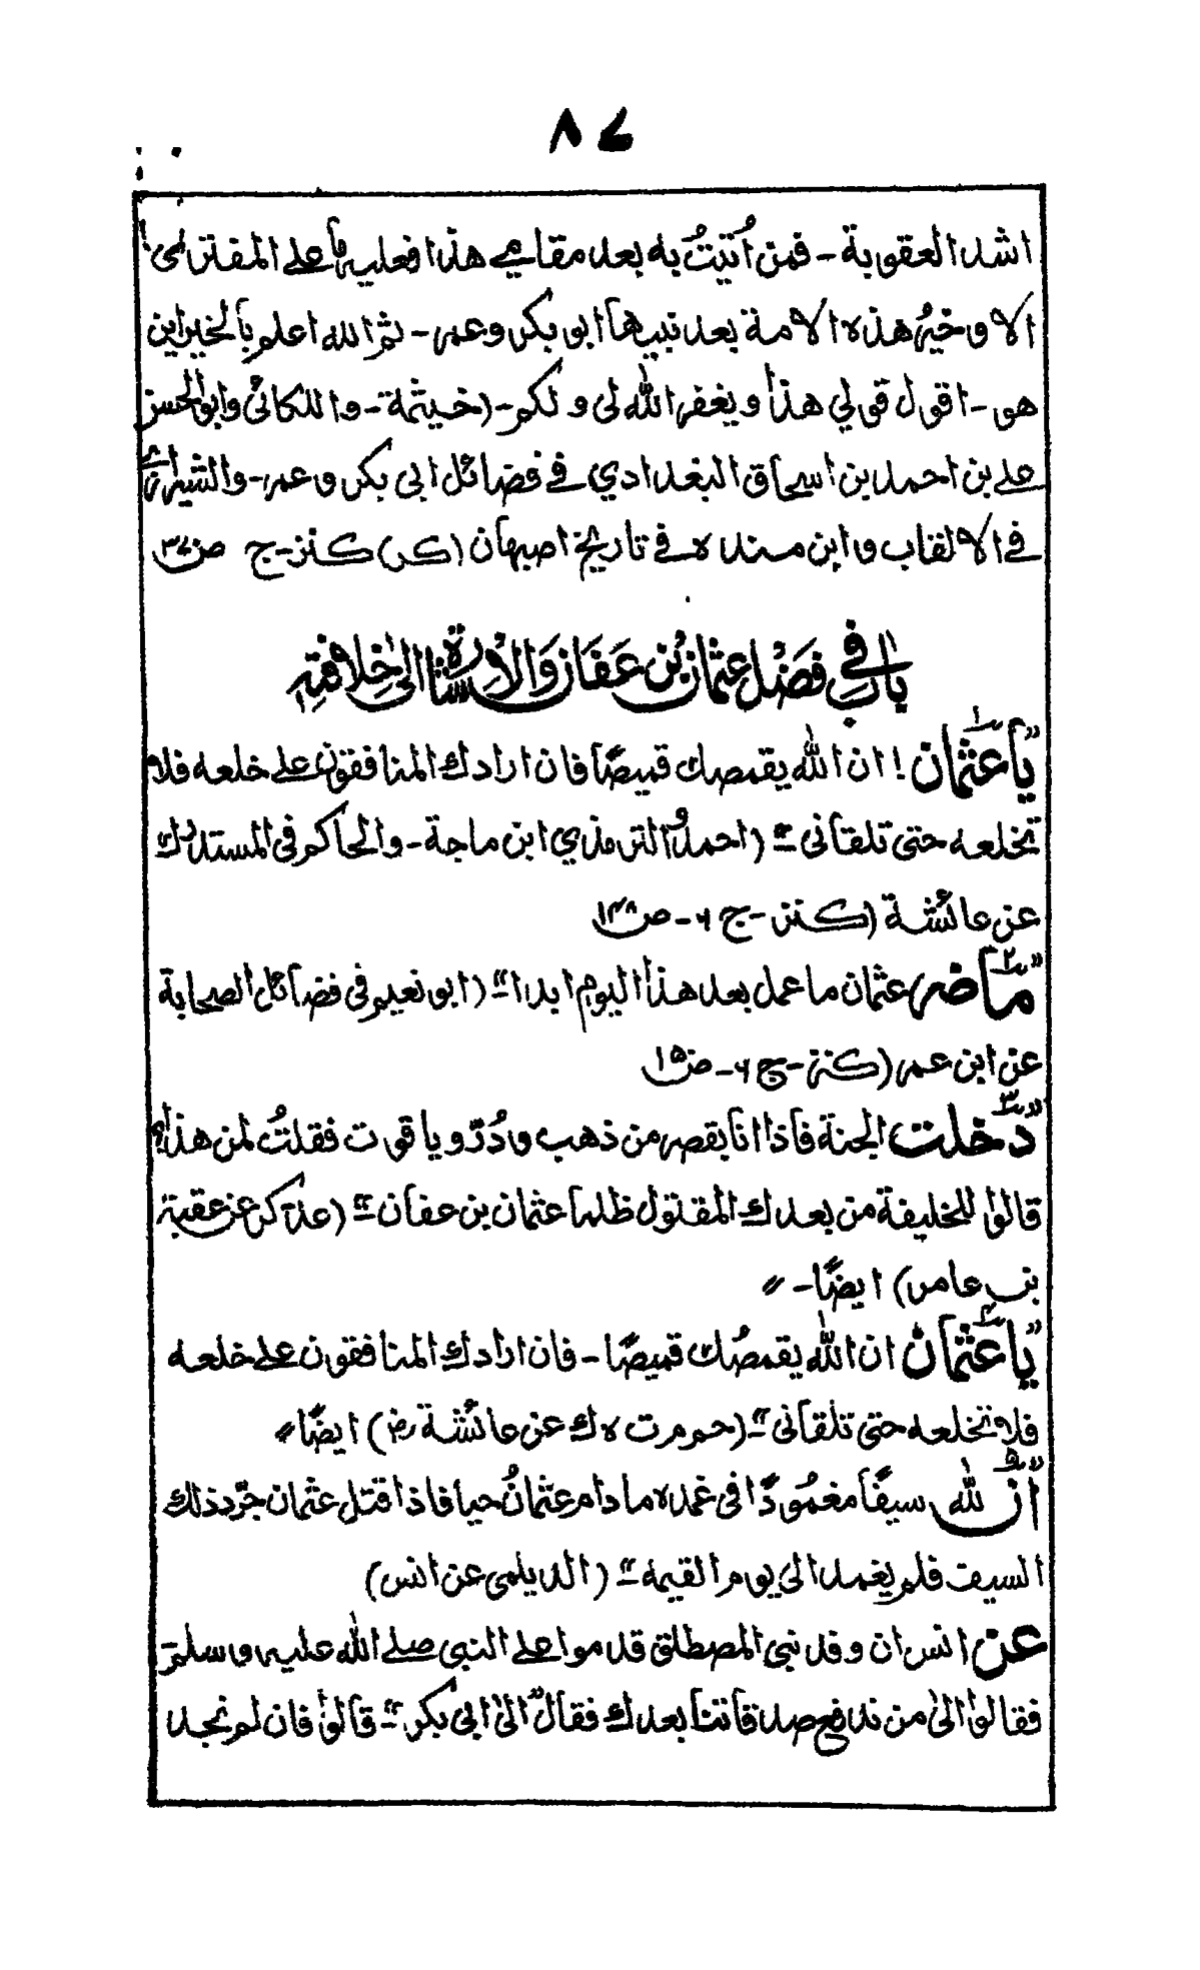 ٨٤
اشد العقوبة - فمن أتيتُ به بعد مقامي هذا فعليه ما على المفترى
الا و خيرُ هذه الامة بعد نبيها ابو بكر و عمر - ثم الله اعلم بالخير اين
هو - اقول قولي هذا و يغفر الله لى و لكم - (خيثمة - واللكائى وابو الحسن
على بن احمد بن اسحاق البغدادي فى فضائل ابى بكر و عمر - والشيرازى
فى الالقاب و ابن منده فى تاريخ اصبهان (كر) كنز - ج ص
باب فِي فَضْل عثمان بْن عَفَان وَالاشارة الىٰ خِلافتِه
”يا عثمان! ان الله يقمصك قميصًا فان ارادك المنافقون على خلعه فلا
تخلعه حتى تلقانى“ (احمد والترمذي ابن ماجة - والحاكم فى المستدرك
عن عائشة (كنز - ج ٦ - ص ١٤٨
”ما ضر عثمان ما عمل بعد هذا اليوم ابدا“ (ابو نعيم فى فضائل الصحابة
عن ابن عمر (كنز - ج ٦ - ص
”دخلت الجنة فاذا انا بقصر من ذهب و دُرّ و ياقوت فقلتُ لمن هذا؟
قالوا للخليفة من بعدك المقتول ظلما عثمان بن عفان“ (عد كر عن عقبة
بن عامر) ايضًا - ”
”يا عثمان ان الله يقمصُك قميصًا - فان ارادك المنافقون على خلعه
فلا تخلعه حتى تلقانى“ (حم ت ه ك عن عائشة رض) ايضًا ”
”ان لله سيفًا مغمُودًا فى غمده ما دام عثمانُ حيا فاذا قتل عثمان جرّد ذلك
السيف فلم يغمد الى يوم القيمة“ (الديلمى عن انس)
عن انس ان وفد نبى المصطلق قدموا على النبى صلى الله عليه و سلم
فقالوا الىٰ من ندفع صدقاتنا بعدك فقال ”الىٰ ابى بكر“ قالوا فان لم نجد